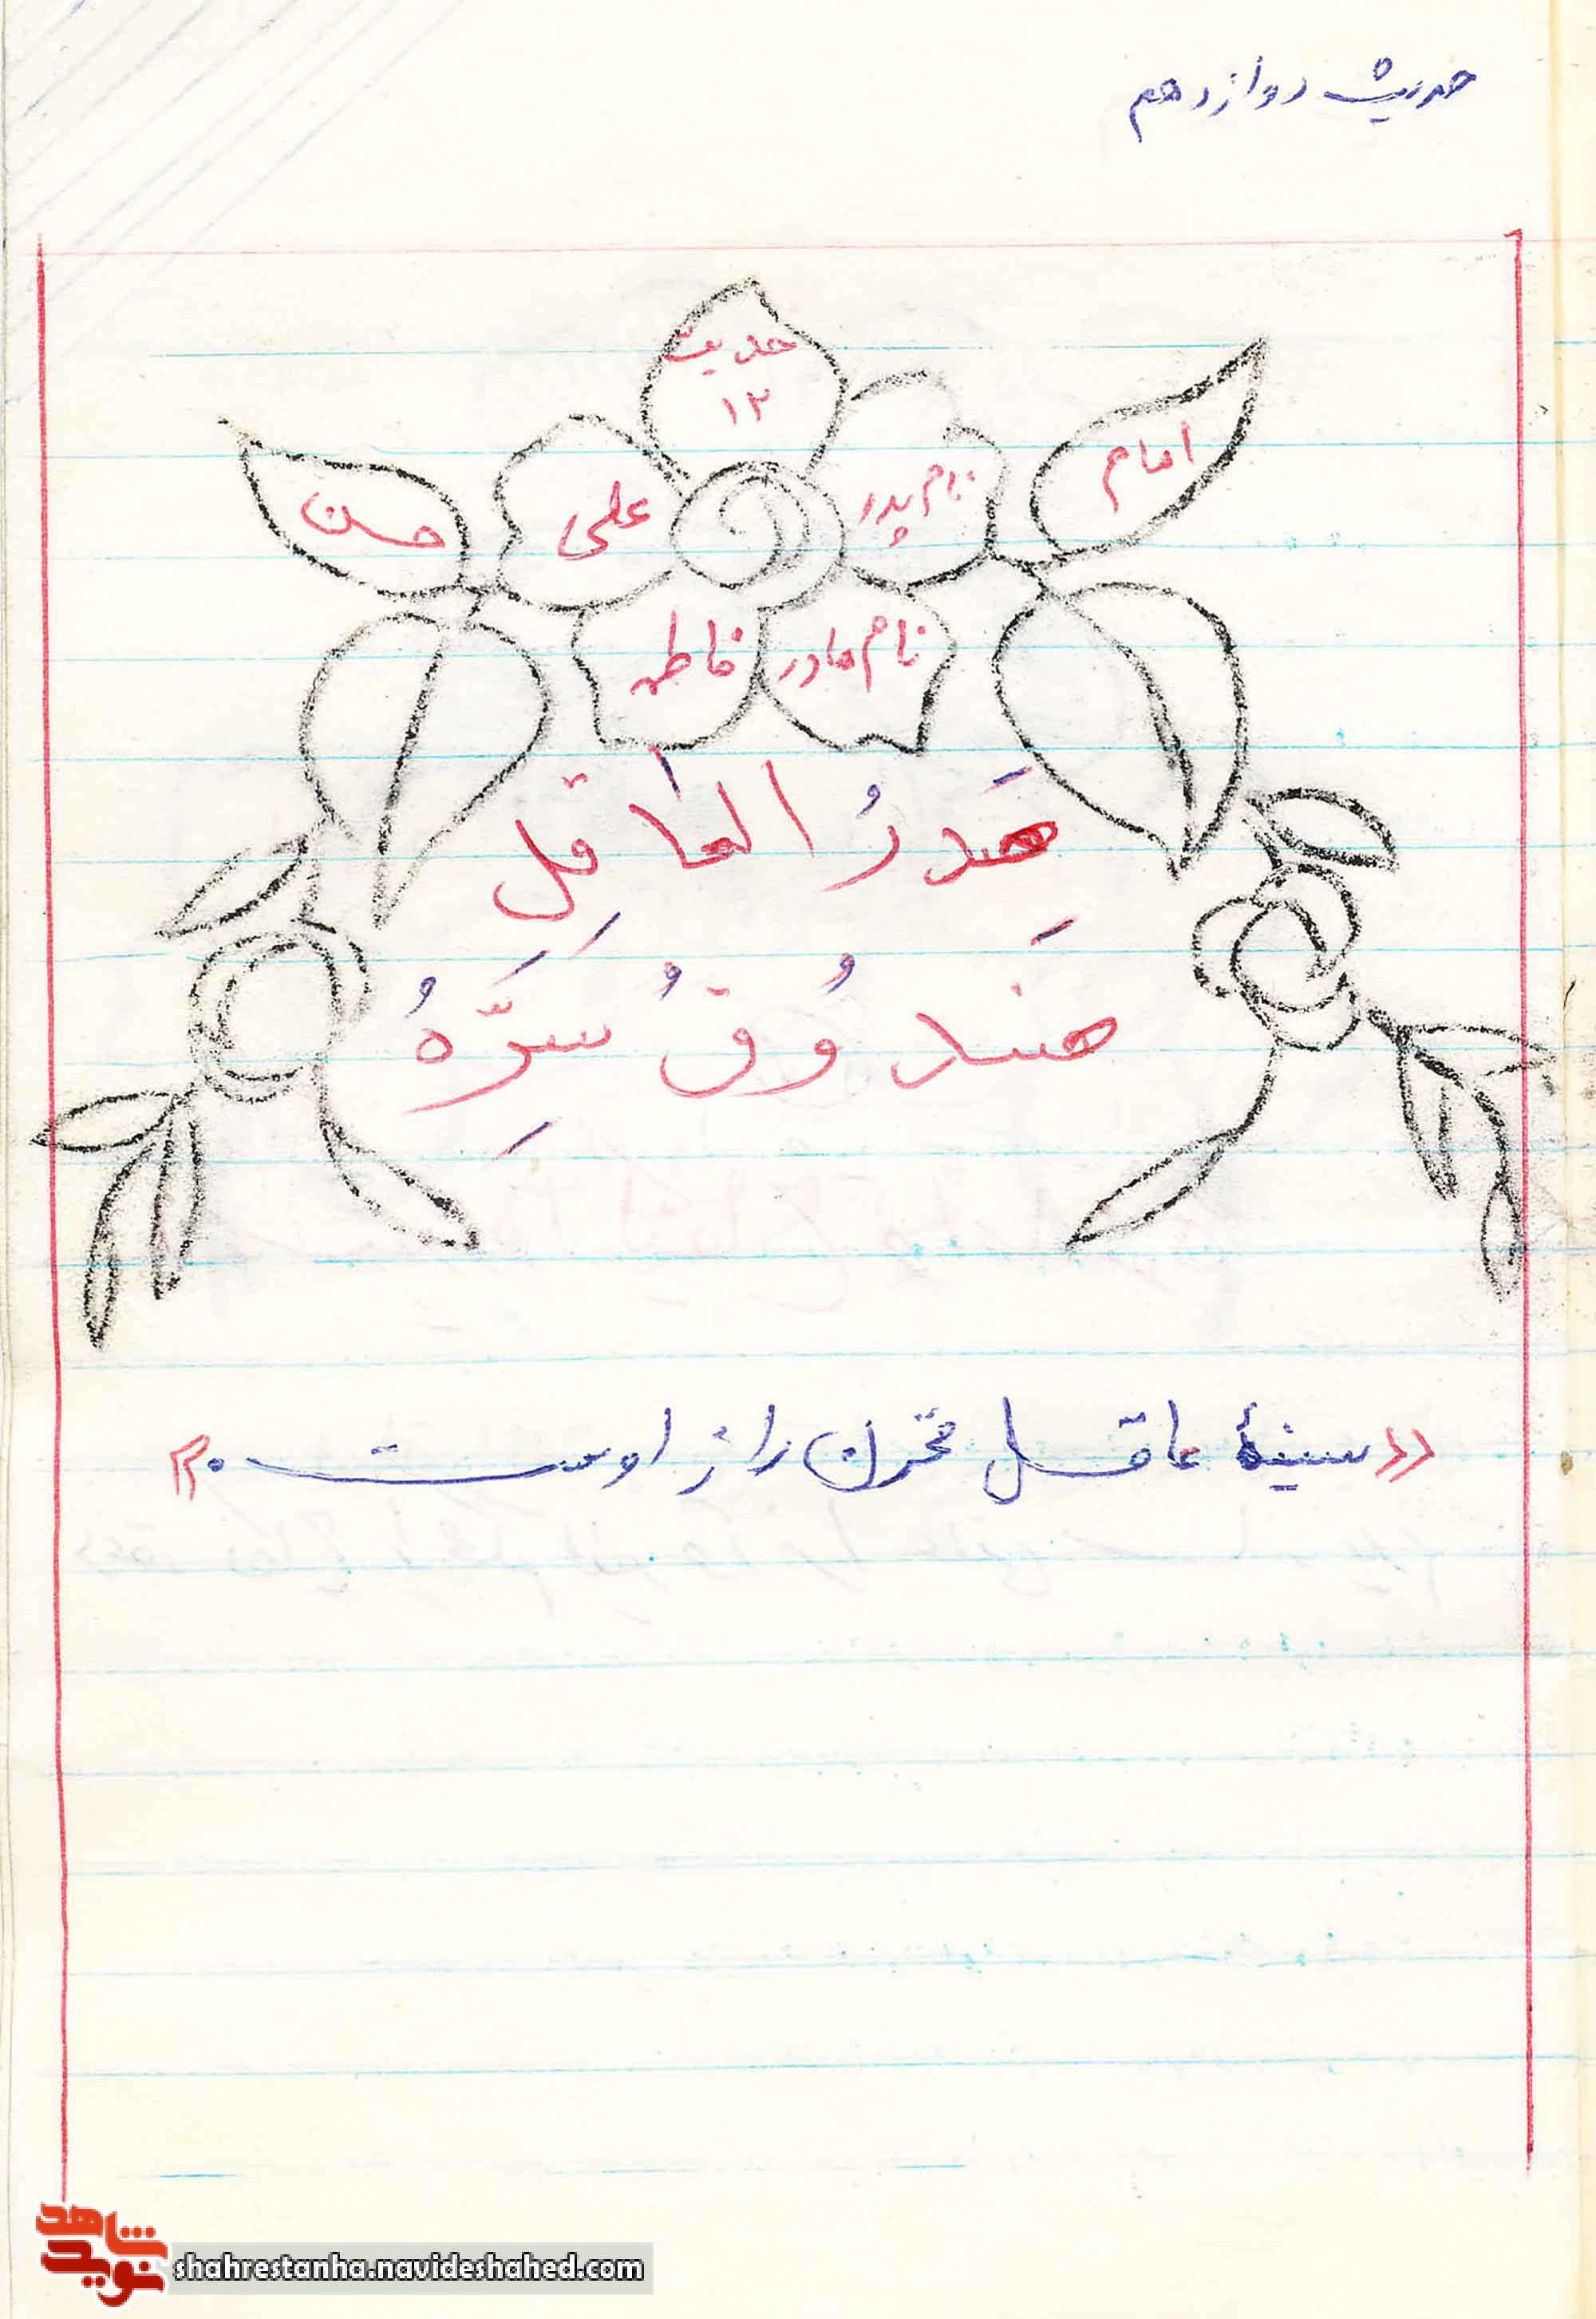 حدیث دوازدهم
حدیث
۱۲
امام
نام پدر
علی
حسن
نام مادر
فاطمه
صَدرُ العاقِلِ
صَندُوقُ سَِرَّهُ
«سینهٔ عاقل مخزن راز اوست.»
نوید شاهد
shahrestanha.navideshahed.com